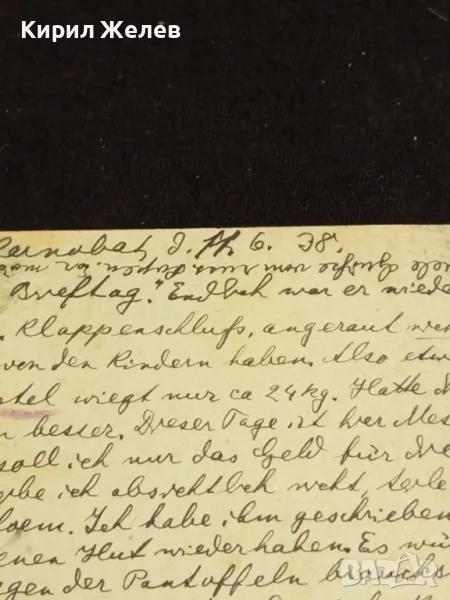 Кирил Желев
Karnobat, d. 11. 6. 38.
viele Grüße vom
Brieftag." Endlich war er wiede
. Klappenschluß, angeraut
von den Kindern haben. Also etw
tel wiegt nur ca 24 kg. Hatte
n besser. Dieser Tage ist hier Mes
soll ich nur das Geld für
be ich absichtlich
. Ich habe ihm geschrieben
enen Hut wiederhaben. Es wü
gen der Pantoffeln brauchs
BAZAR